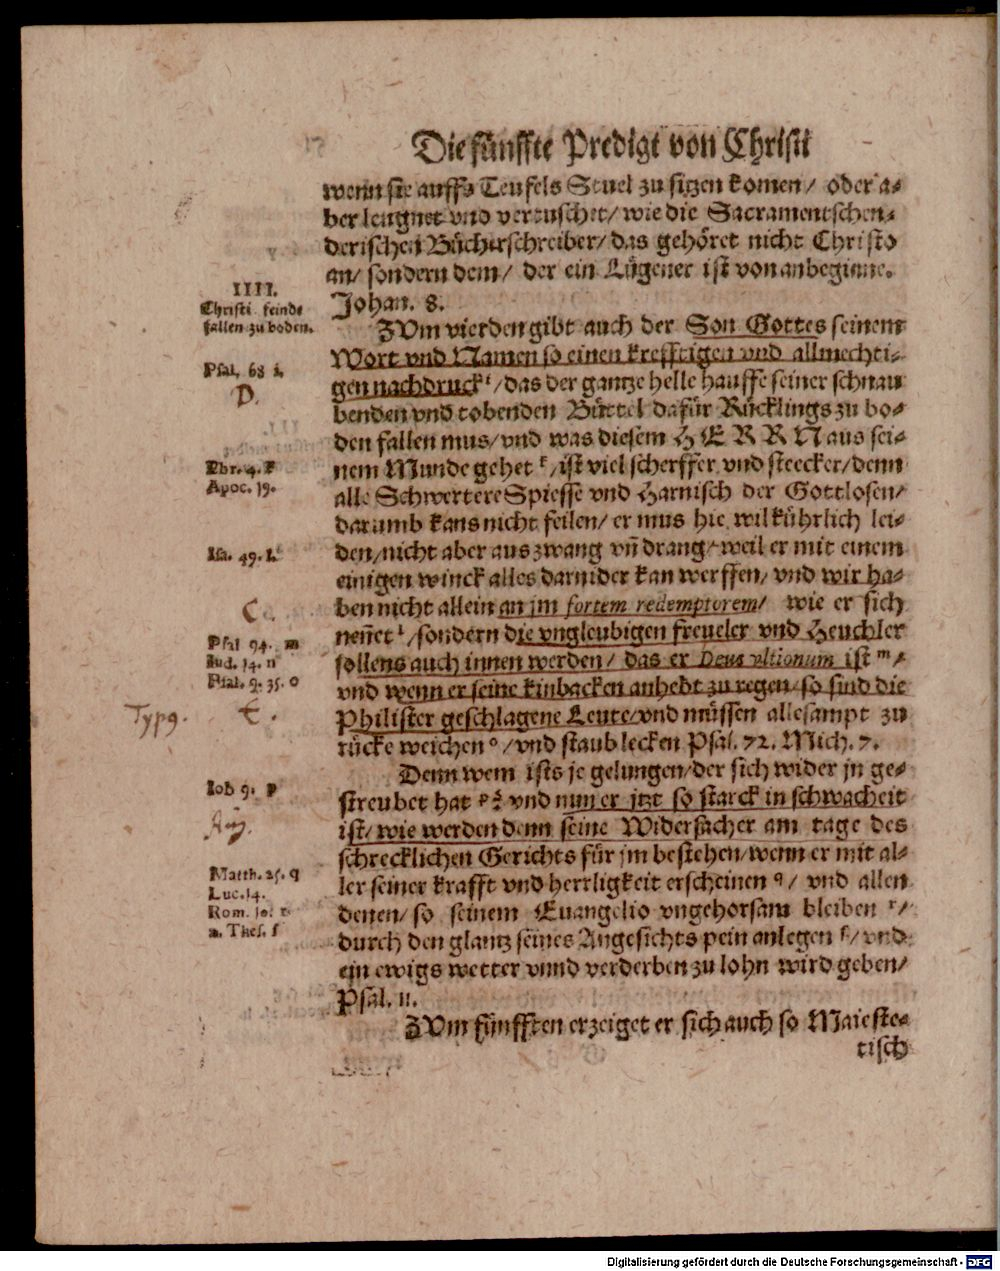 Die fünffte Predigt von Christi
wenn sie auffs Teufels Stuel zu sitzen komen/ oder a⸗
ber leugnet vnd vertuschet/ wie die Sacramentschen⸗
derischen Bücherschreiber/ das gehöret nicht Christo
an/ sondern dem/ der ein Lügener ist von anbeginne.
Johan. 8.
IIII.
Christi feinde
fallen zu boden.
ZVm vierden gibt auch der Son Gottes seinem
Wort vnd Namen so einen krefftigen vnd allmechti⸗
Psal. 68 i.
gen nachdruck i/ das der gantze helle hauffe seiner schnau
D.
benden vnd tobenden Büttel dafür Rücklings zu bo⸗
den fallen mus/ vnd was diesem HERRN aus sei⸗
Ebr. 4. k
nem Munde gehet k/ ist viel scherffer vnd stercker/ denn
Apoc. 19.
alle Schwertere Spiesse vnd Harnisch der Gottlosen/
darumb kans nicht feilen/ er mus hie wilkührlich lei⸗
Isa. 49. l.
den/ nicht aber aus zwang vñ drang/ weil er mit einem
einigen winck alles darnider kan werffen/ vnd wir ha⸗
C.
ben nicht allein an jm fortem redemptorem/ wie er sich
neñet l/ sondern die vngleubigen freueler vnd Heuchler
Psal 94. m
Iud. 14. n
sollens auch innen werden/ das er Deus vltionum ist m/
Psal. 9. 35. o
vnd wenn er seine kinbacken anhebt zu regen/ so sind die
Typq. C.
Philister geschlagene Leute/ vnd müssen allesampt zu
rücke weichen o/ vnd staub lecken Psal. 72. Mich. 7.
Denn wem ists je gelungen/ der sich wider jn ge⸗
Iob 9. p
streubet hat p? vnd nun er jtzt so starck in schwacheit
Aug.
ist/ wie werden denn seine Widersacher am tage des
schrecklichen Gerichts für jm bestehen/ wenn er mit al⸗
Matth. 25. q
ler seiner krafft vnd herrligkeit erscheinen q/ vnd allen
Luc. 14.
Rom. 10. r
denen/ so seinem Euangelio vngehorsam bleiben r/
2. Thes. s
durch den glantz seines Angesichts pein anlegen s/ vnd
ein ewigs wetter vnnd verderben zu lohn wird geben/
Psal. 11.
ZVm fünfften erzeiget er sich auch so Maieste⸗
tisch
Digitalisierung gefördert durch die Deutsche Forschungsgemeinschaft - DFG